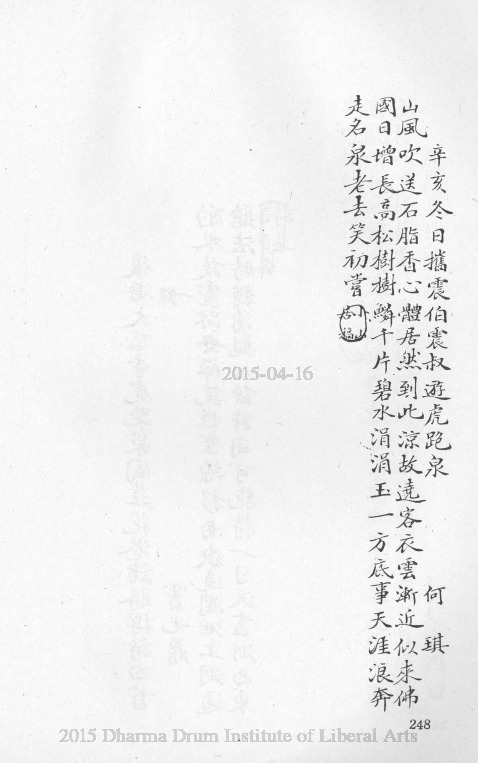 辛亥冬日攜震伯震叔遊虎跑泉 何琪
山風吹送石脂香心體居然到此涼故遶客衣雲漸近似來佛
國日增長高松樹樹鱗千片碧水涓涓玉一方底事天涯浪奔
走名泉老去笑初嘗
2015-04-16
248
2015 Dharma Drum Institute of Liberal Arts